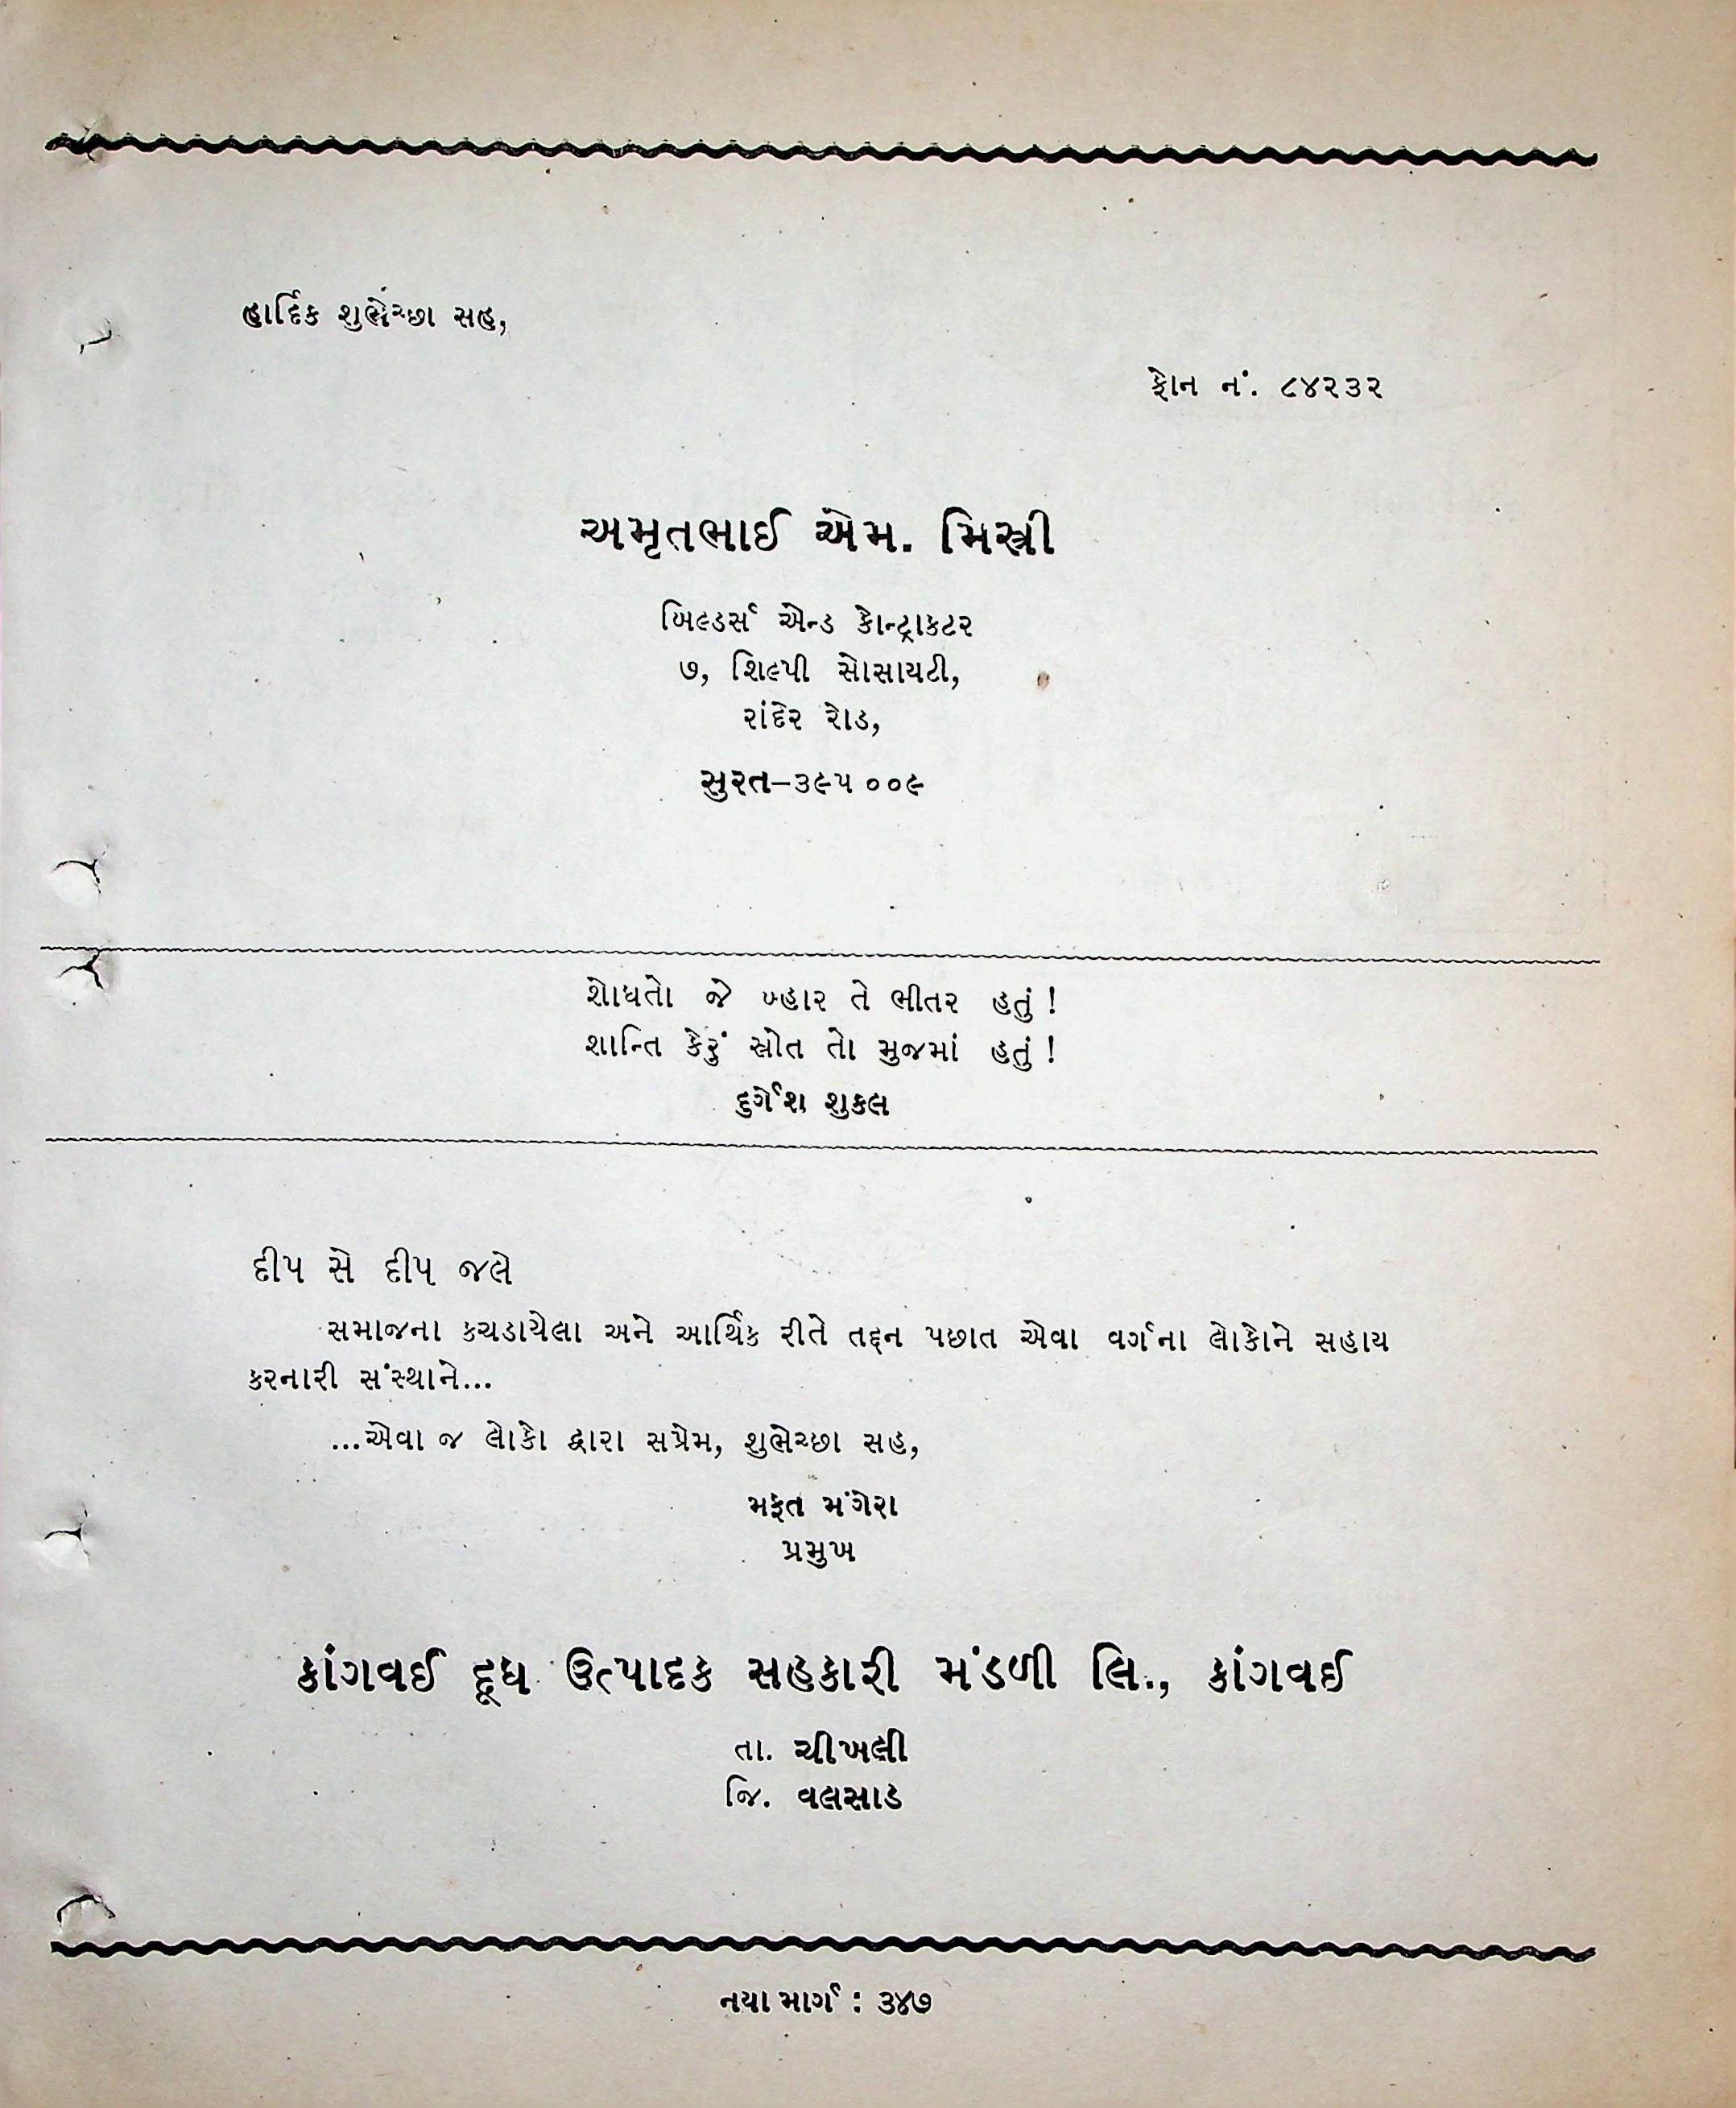 હાર્દિક શુભેચ્છા સહ,
ફોન નં. ૮૪૨૩૨
અમૃતભાઈ એમ. મિસ્ત્રી
બિલ્ડર્સ એન્ડ કોન્ટ્રાક્ટર
૭, શિલ્પી સોસાયટી,
રાંદેર રોડ,
સુરત–૩૯૫૦૦૯
શોધતો જે બ્હાર તે ભીતર હતું !
શાન્તિ કેરું સ્રોત તો મુજમાં હતું !
દુર્ગેશ શુકલ
દીપ સે દીપ જલે
સમાજના કચડાયેલા અને આર્થિક રીતે તદ્દન પછાત એવા વર્ગના લોકોને સહાય
કરનારી સંસ્થાને...
...એવા જ લોકો દ્વારા સપ્રેમ, શુભેચ્છા સહ,
મફત મંગેરા
પ્રમુખ
કાંગવઈ દૂધ ઉત્પાદક સહકારી મંડળી લિ., કાંગવઈ
તા. ચીખલી
જિ. વલસાડ
નયા માર્ગ : ૩૪૭